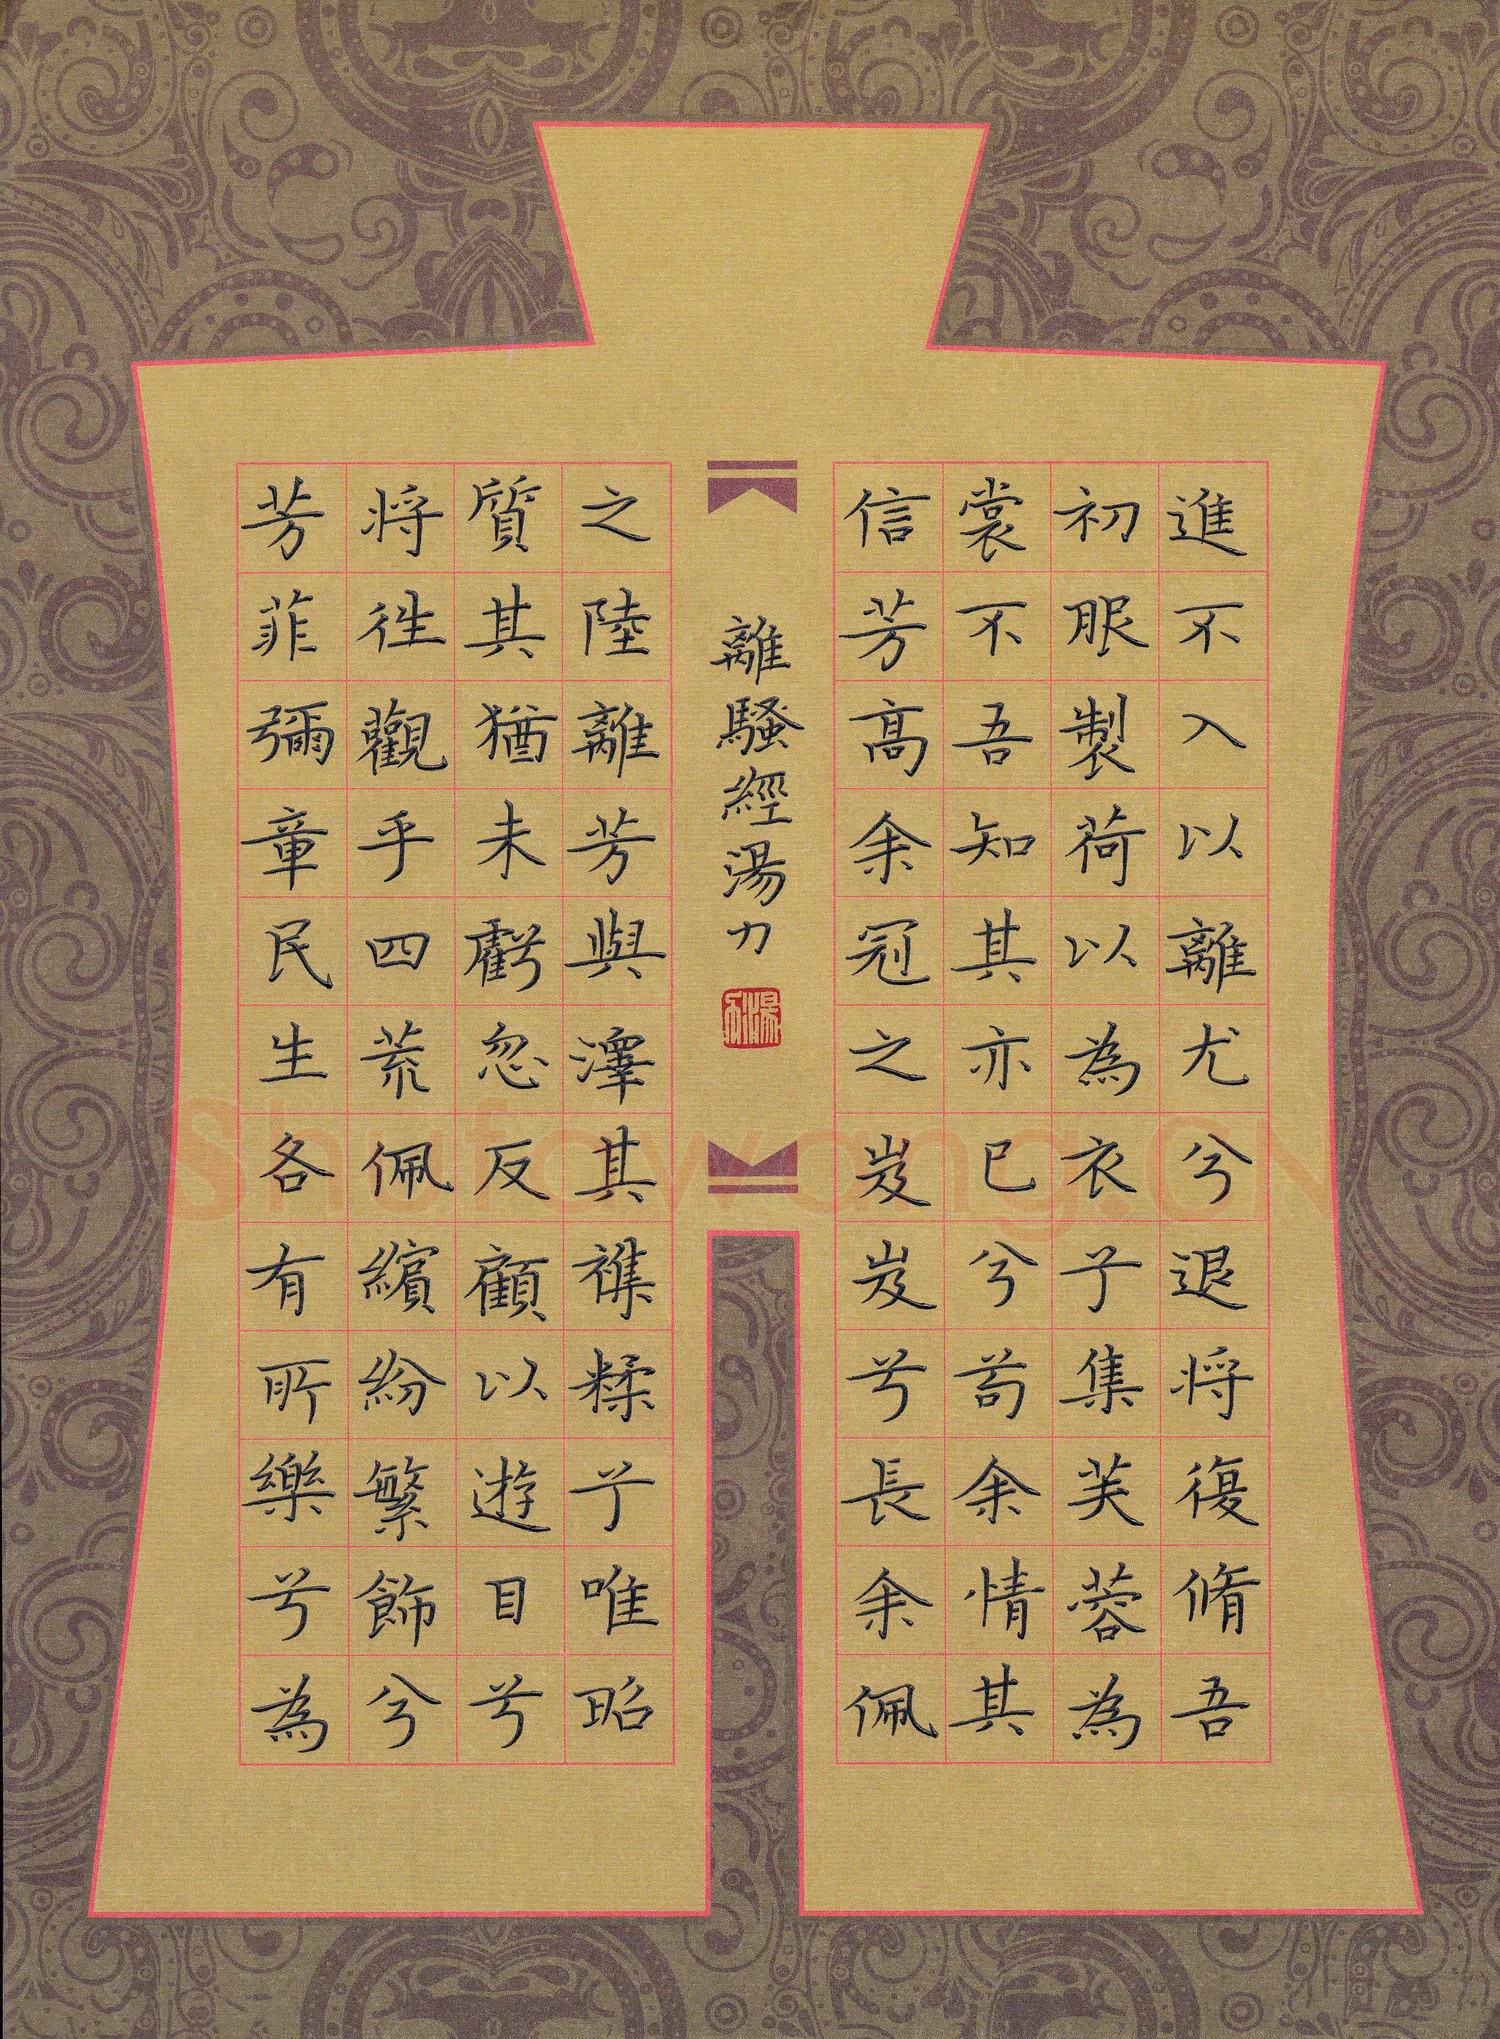 進不入以離尤兮退将復脩吾
初服製荷以為衣兮集芙蓉為
裳不吾知其亦已兮苟余情其
信芳高余冠之岌岌兮長余佩
離騷經湯力
之陸離芳與澤其襍糅兮唯昭
質其猶未虧忽反顧以遊目兮
将徃觀乎四荒佩繽紛繁飾兮
芳菲彌章民生各有所樂兮為
Shufawang.CN